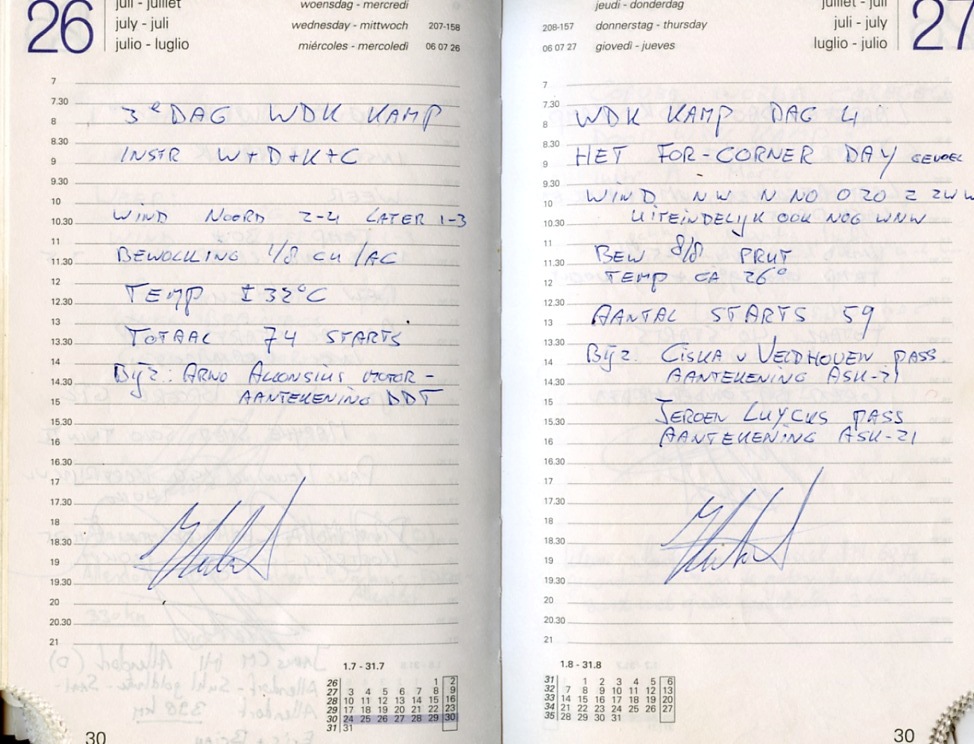 26
juli - juillet
july - juli
julio - luglio
woensdag - mercredi
wednesday - mittwoch 207-158
miércoles - mercoledì 06 07 26
7
7.30
3e DAG WDK KAMP
8
8.30
INSTR W+D+K+C
9
9.30
10
WIND NOORD 2-4 LATER 1-3
10.30
11
BEWOLKING 1/8 CU/AC
11.30
12
TEMP ± 32°C
12.30
13
TOTAAL 74 STARTS
13.30
14
Bijz: ARNO ALOONSIUS MOTOR-
14.30
AANTEKENING DDT
15
15.30
16
16.30
17
17.30
18
18.30
19
19.30
20
20.30
21
1.7 - 31.7
26 1 2
27 3 4 5 6 7 8 9
28 10 11 12 13 14 15 16
29 17 18 19 20 21 22 23
30 24 25 26 27 28 29 30
31 31
30
jeudi - donderdag
208-157 donnerstag - thursday
06 07 27 giovedì - jueves
juillet - juli
juli - july
luglio - julio
27
7
7.30
WDK KAMP DAG 4
8
8.30
HET FOR-CORNER DAY GEVOEL
9
9.30
WIND NW N NO O ZO Z ZWW
10
UITEINDELIJK OOK NOG WNW
10.30
11
BEW 8/8 PRUT
11.30
TEMP CA 26°
12
12.30
AANTAL STARTS 59
13
13.30
Bijz. CISKA v VELDHOVEN PASS
14
AANTEKENING ASK-21
14.30
15
JEROEN LUYCKS PASS
15.30
AANTEKENING ASK-21
16
16.30
17
17.30
18
18.30
19
19.30
20
20.30
21
1.8 - 31.8
31 1 2 3 4 5 6
32 7 8 9 10 11 12 13
33 14 15 16 17 18 19 20
34 21 22 23 24 25 26 27
35 28 29 30 31
30